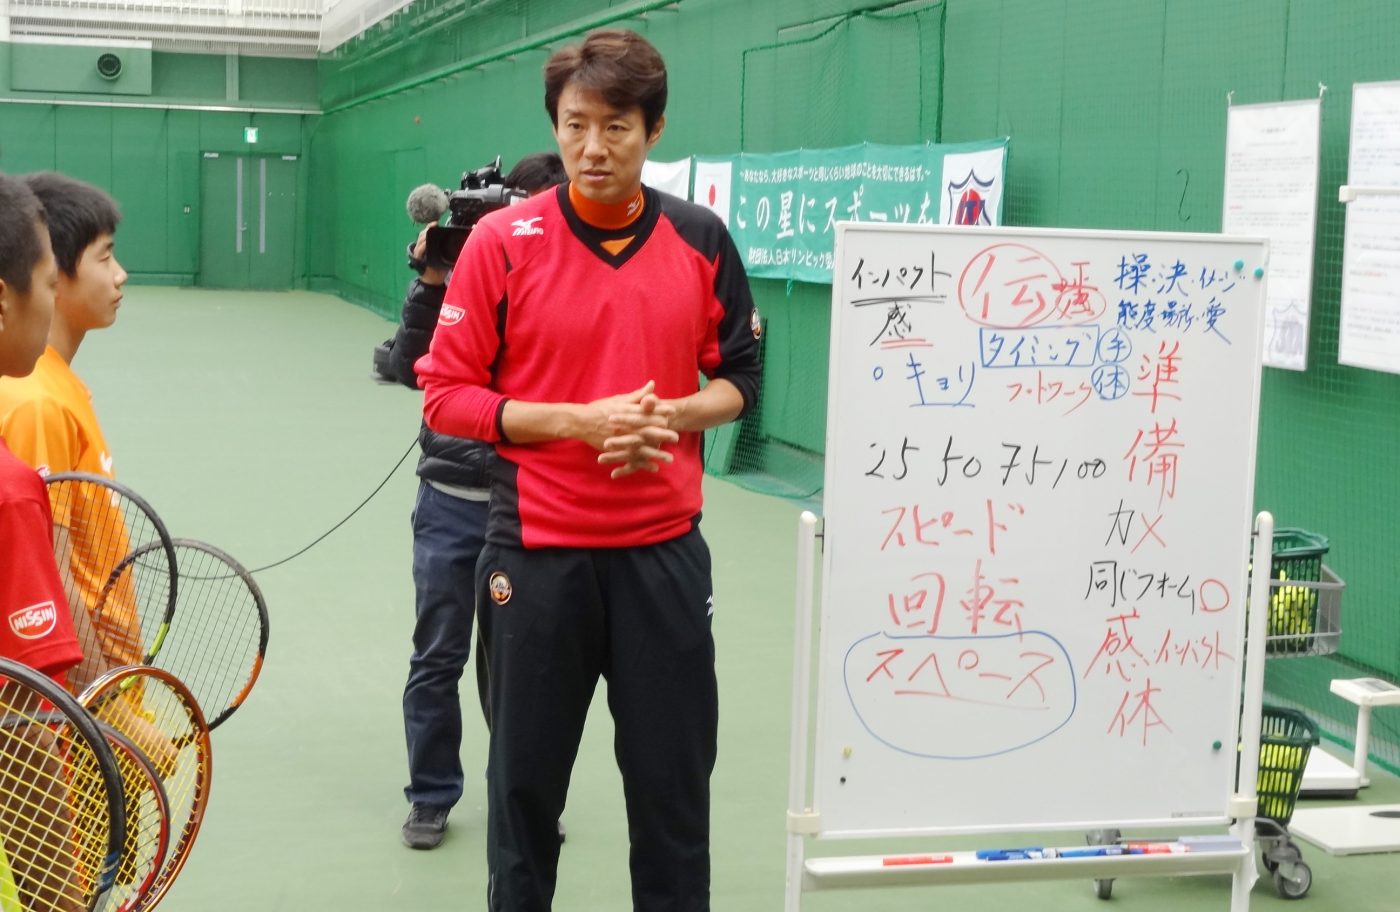 ～あなたなら、大好きなスポーツと同じくらい地球のことを大切にできるはず。～
この星にスポーツを
財団法人日本オリンピック委
MIZUNO
NISSIN
NISSIN
インパクト
感
。キョリ
伝播
タイミング 手
フットワーク 体
操・決・イメージ
態度・場所・愛
準
備
25 50 75 100
スピード
回転
スペース
力×
同じフォーム○
感・インパクト
体